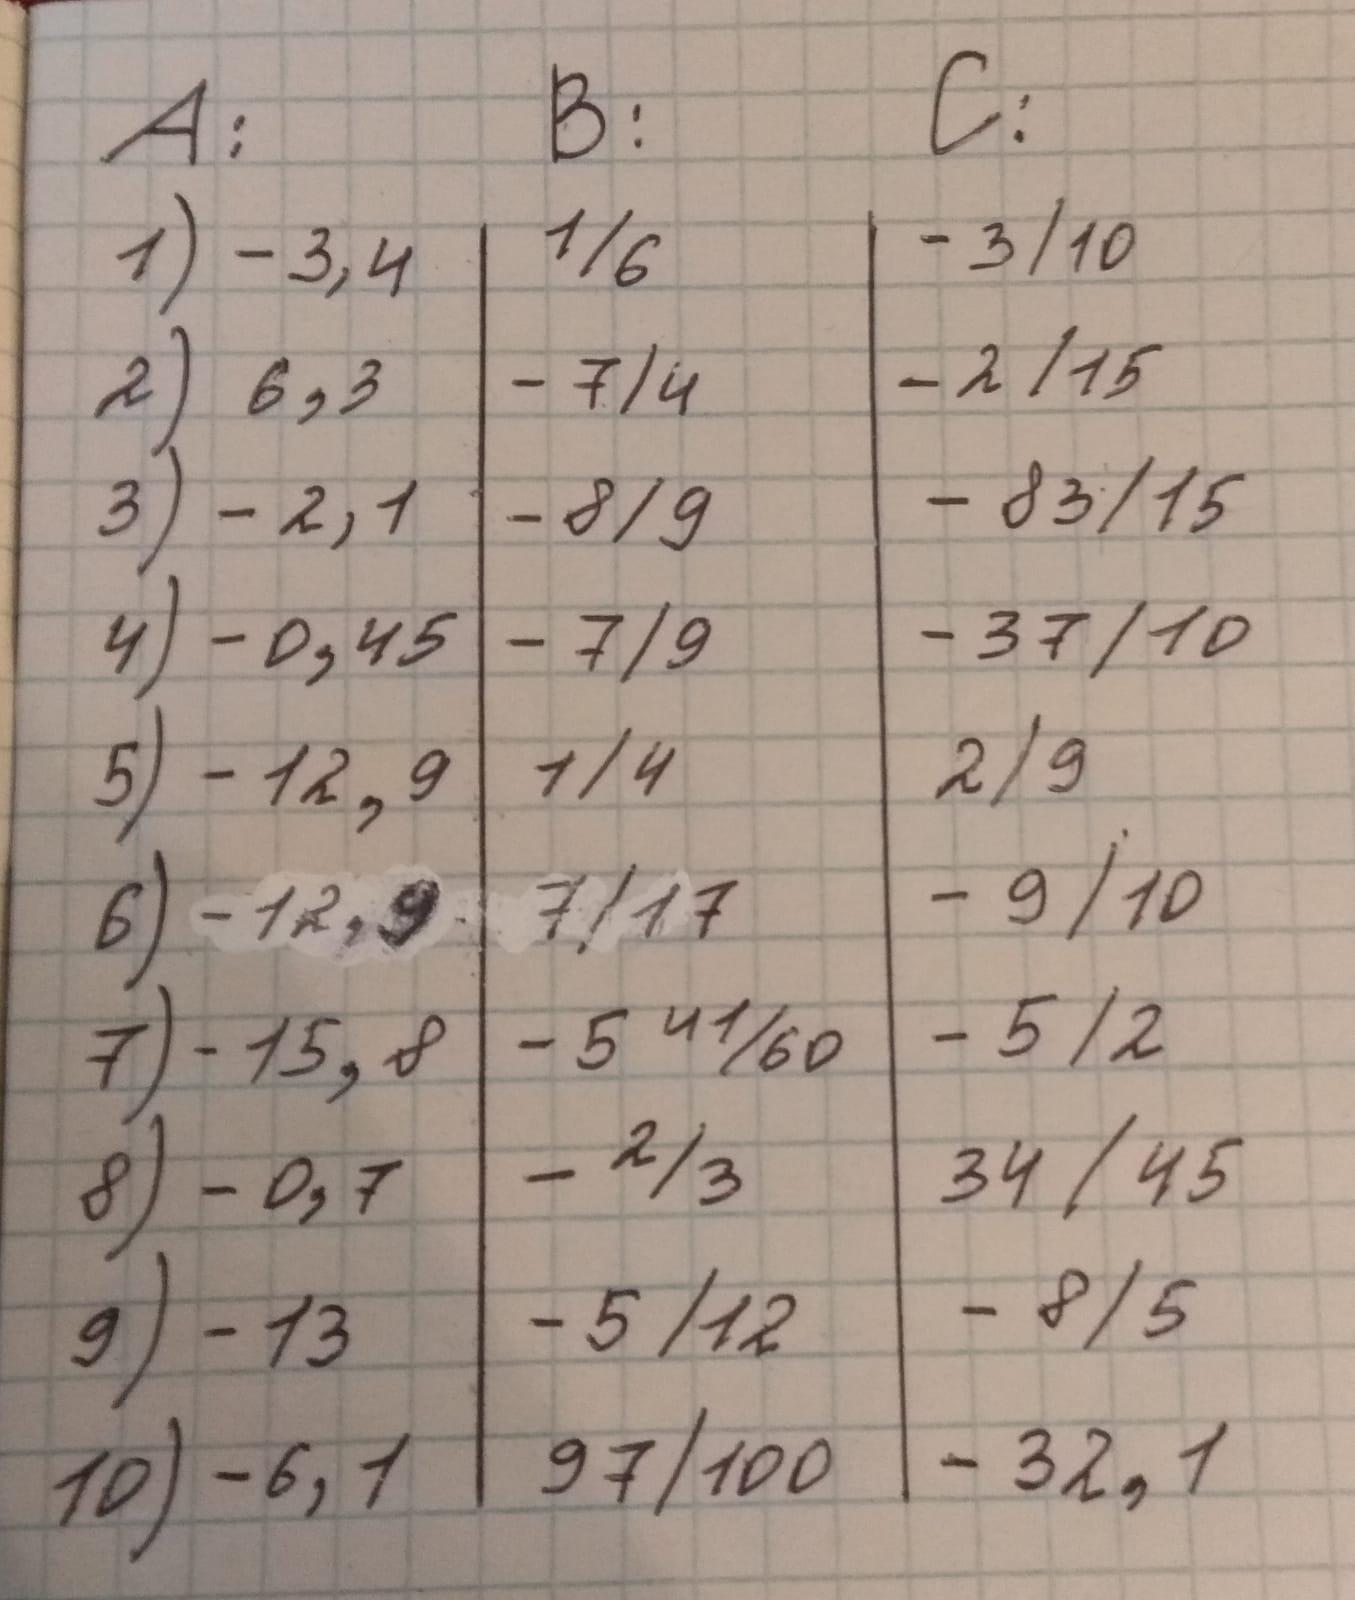 A: B: C:
1) -3,4 1/6 -3/10
2) 6,3 -7/4 -2/15
3) -2,1 -8/9 -83/15
4) -0,45 -7/9 -37/10
5) -12,9 1/4 2/9
6) -12,9 7/17 -9/10
7) -15,8 -5 41/60 -5/2
8) -0,7 -2/3 34/45
9) -13 -5/12 -8/5
10) -6,1 97/100 -32,1